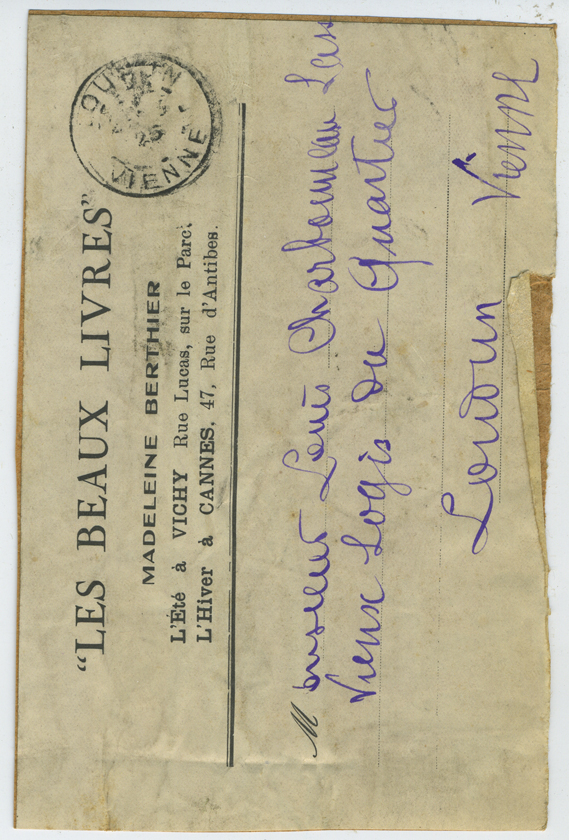 "LES BEAUX LIVRES"
MADELEINE BERTHIER
L'Été à VICHY Rue Lucas, sur le Parc.
L'Hiver à CANNES, 47, Rue d'Antibes.
LOUDUN
25
VIENNE
Monsieur Louis Charbonneau Lass
Vieux Logis du Quartier
Loudun Vienne